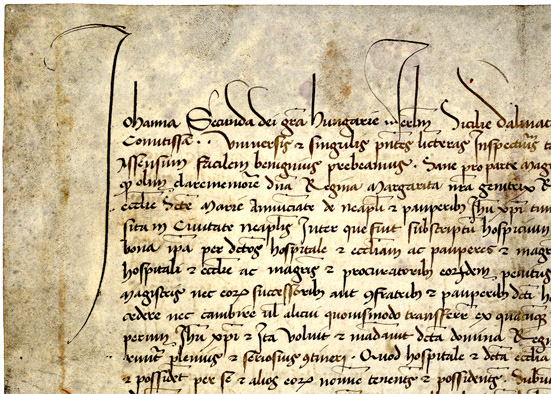 Johanna Secunda dei gra hungarie ierlm Sicilie dalmac
Comitissa. Universis & singulis pntes licteras Inspectur
Assensum facilem benignius prebeamus. Sane pro parte mag
q olim clarememorie dna Regina Margarita nra genitrix R
ecclie Scte Marie Annuciate de neapli & pauperib Jhu xpi
sita in Civitate neaplis Inter que sunt subscriptu hospicium
bona ipa per dctos hospitale & eccliam ac pauperes & mag
hospitali & ecclie ac magris & procuratorib eorumdem penitus
magistris nec eor successorib aut confratrib & pauperib dcti h
cedere nec cambire vl alicui quomodo transferre ex
Jhu xpi & Ita voluit & madavit dcta domina Regi
plenius & seriosius contineri. Quod hospitale & dcta ecclia
& possidet per se & alios eor nomine tenentes & possidentes.